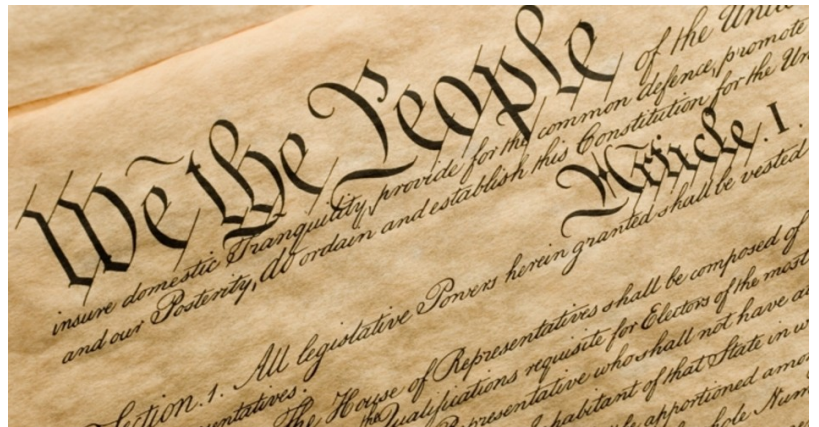 We the People of the Unit
insure domestic Tranquility, provide for the common defence, promote
and our Posterity, do ordain and establish this Constitution for the Un
Article. I.
Section. 1. All legislative Powers herein granted shall be vested
sentatives.
The House of Representatives shall be composed of
the Qualifications requisite for Electors of the most
Representative who shall not have a
Inhabitant of that State in w
apportioned amo
whole Num